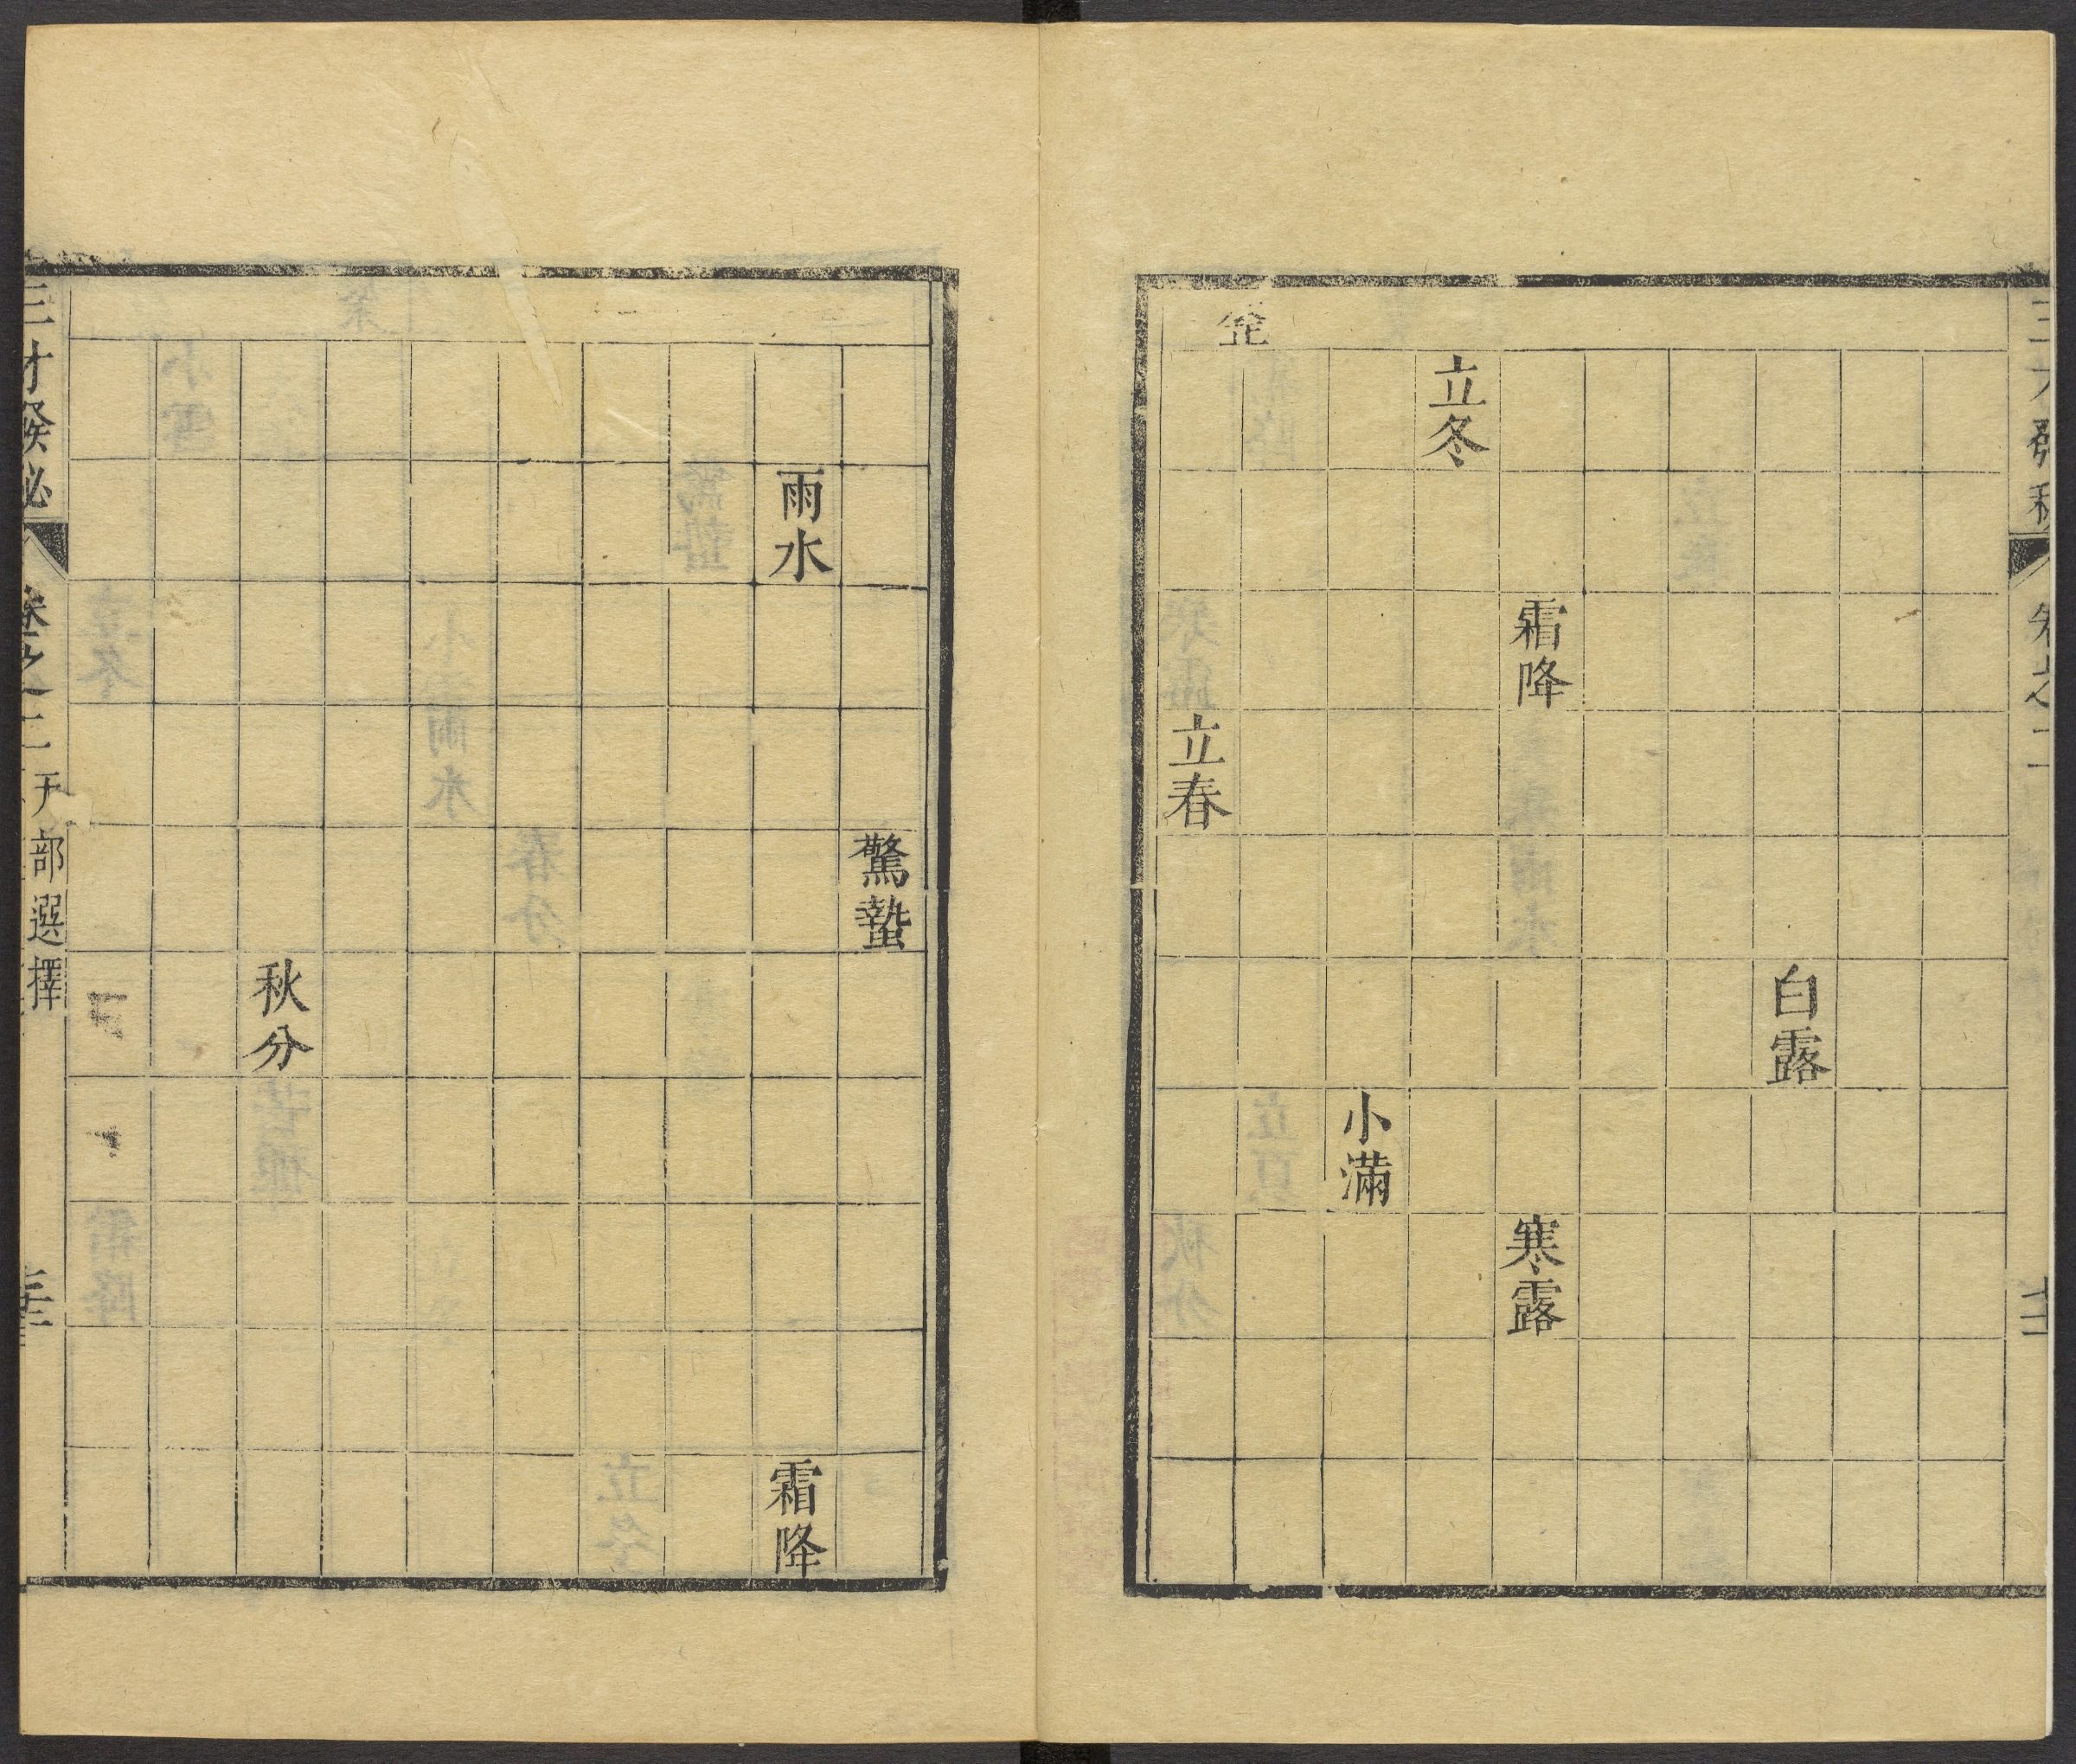 三才發秘 卷之二
白露
霜降 寒露
立冬
小滿
立春
驚蟄
雨水 霜降
秋分
三才發秘 卷之二 天部選擇